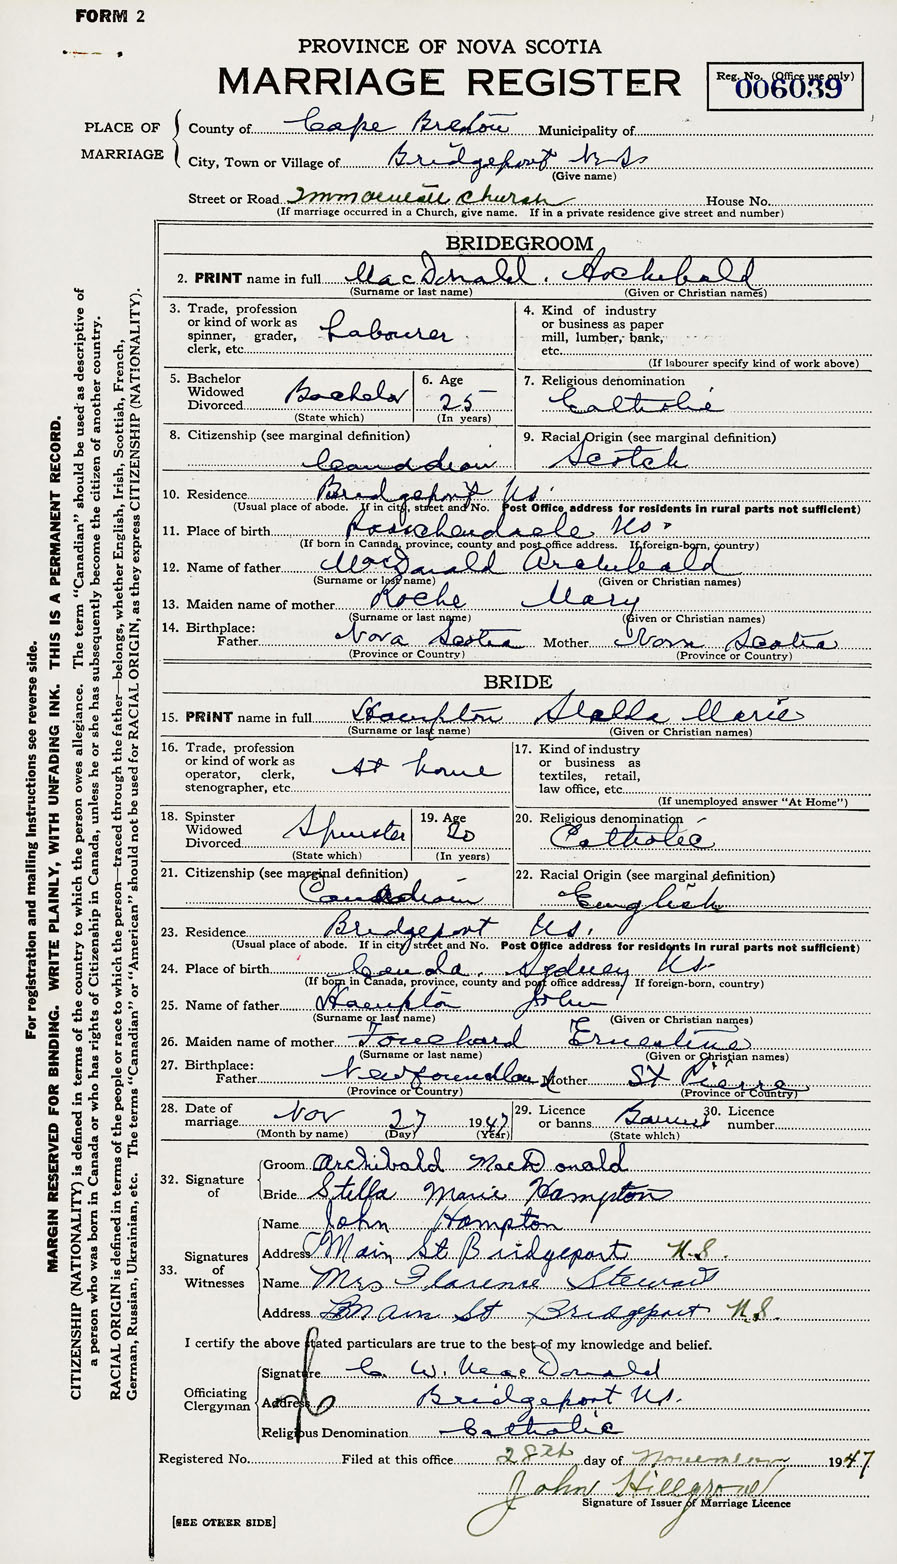 FORM 2
PROVINCE OF NOVA SCOTIA
MARRIAGE REGISTER
Reg. No. (Office use only)
006039
PLACE OF MARRIAGE
County of Cape Breton Municipality of
City, Town or Village of Bridgeport N.S.
(Give name)
Street or Road Immaculate Church House No.
(If marriage occurred in a Church, give name. If in a private residence give street and number)
BRIDEGROOM
2. PRINT name in full MacDonald. Archibald
(Surname or last name) (Given or Christian names)
3. Trade, profession
or kind of work as
spinner, grader,
clerk, etc. Labourer
4. Kind of industry
or business as paper
mill, lumber, bank,
etc.
(If labourer specify kind of work above)
5. Bachelor
Widowed
Divorced Bachelor
(State which)
6. Age
25
(In years)
7. Religious denomination
Catholic
8. Citizenship (see marginal definition)
Canadian
9. Racial Origin (see marginal definition)
Scotch
10. Residence Bridgeport N.S.
(Usual place of abode. If in city, street and No. Post Office address for residents in rural parts not sufficient)
11. Place of birth Passchendaele N.S.
(If born in Canada, province, county and post office address. If foreign-born, country)
12. Name of father MacDonald Archibald
(Surname or last name) (Given or Christian names)
13. Maiden name of mother Roche Mary
(Surname or last name) (Given or Christian names)
14. Birthplace:
Father Nova Scotia Mother Nova Scotia
(Province or Country) (Province or Country)
BRIDE
15. PRINT name in full Hampton Stella Marie
(Surname or last name) (Given or Christian names)
16. Trade, profession
or kind of work as
operator, clerk,
stenographer, etc. At home
17. Kind of industry
or business as
textiles, retail,
law office, etc.
(If unemployed answer "At Home")
18. Spinster
Widowed
Divorced Spinster
(State which)
19. Age
20
(In years)
20. Religious denomination
Catholic
21. Citizenship (see marginal definition)
Canadian
22. Racial Origin (see marginal definition)
English
23. Residence Bridgeport N.S.
(Usual place of abode. If in city, street and No. Post Office address for residents in rural parts not sufficient)
24. Place of birth Canada. Sydney N.S.
(If born in Canada, province, county and post office address, If foreign-born, country)
25. Name of father Hampton John
(Surname or last name) (Given or Christian names)
26. Maiden name of mother Ernestine
(Surname or last name) (Given or Christian names)
27. Birthplace:
Father Newfoundland Mother St Pierre
(Province or Country) (Province or Country)
28. Date of
marriage Nov 27 1947
(Month by name) (Day) (Year)
29. Licence
or banns Banns
(State which)
30. Licence
number
32. Signature
of
Groom Archibald MacDonald
Bride Stella Marie Hampton
33. Signatures
of
Witnesses
Name John Hampton
Address Main St Bridgeport N.S.
Name Mrs Florence Stewart
Address Main St Bridgeport N.S.
I certify the above stated particulars are true to the best of my knowledge and belief.
Officiating
Clergyman
Signature C. W. MacDonald
Address Bridgeport N.S.
Religious Denomination Catholic
Registered No. Filed at this office 28th day of November 1947
John Hillgrove
Signature of Issuer of Marriage Licence
[SEE OTHER SIDE]
For registration and mailing instructions see reverse side.
MARGIN RESERVED FOR BINDING. WRITE PLAINLY, WITH UNFADING INK. THIS IS A PERMANENT RECORD.
CITIZENSHIP (NATIONALITY) is defined in terms of the country to which the person owes allegiance. The term "Canadian" should be used as descriptive of
a person who was born in Canada or who has rights of Citizenship in Canada, unless he or she has subsequently become the citizen of another country.
RACIAL ORIGIN is defined in terms of the people or race to which the person—traced through the father—belongs, whether English, Irish, Scottish, French,
German, Russian, Ukrainian, etc. The terms "Canadian" or "American" should not be used for RACIAL ORIGIN, as they express CITIZENSHIP (NATIONALITY).